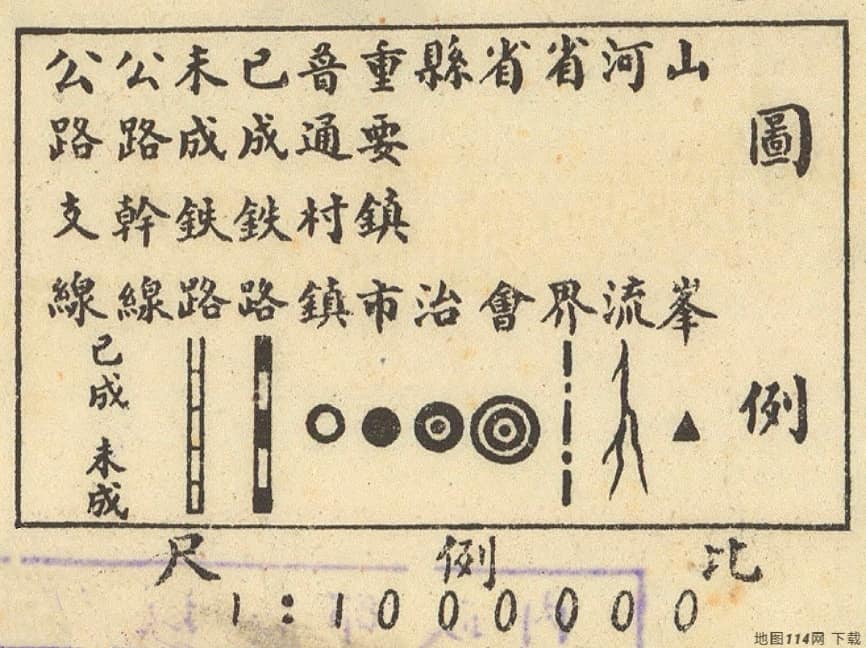 圖例
山峯
河流
省界
省會
縣治
重要鎮市
普通村鎮
已成鉄路
未成鉄路
公路幹線
公路支線
已成
未成
比例尺
1:1000000
地图114网 下载